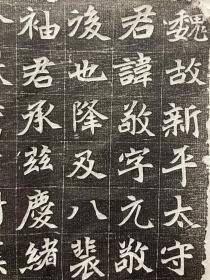 魏故新平太守
君諱敬字元敬
後也降及八裴
袖君承茲慶緒